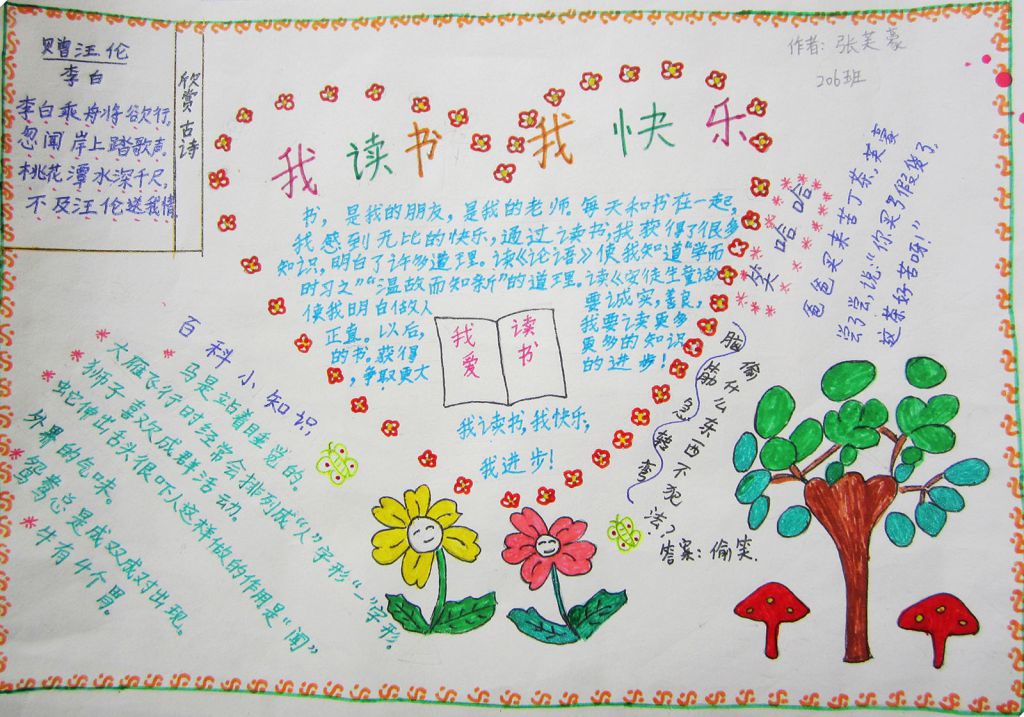 赠汪伦
李白
李白乘舟将欲行,
忽闻岸上踏歌声,
桃花潭水深千尺,
不及汪伦送我情
欣赏古诗
作者:张芙蓉
206班
我读书 我快乐
书,是我的朋友,是我的老师。每天和书在一起,
我感到无比的快乐,通过读书,我获得了很多
知识,明白了许多道理。读《论语》使我知道“学而
时习之”“温故而知新”的道理。读《安徒生童话》
使我明白做人 要诚实,善良,
正直。以后, 我要读更多
的书。获得 更多的知识
,争取更大 的进步!
我爱 读书
我读书,我快乐,
我进步!
哈哈哈笑
爸爸买来苦丁茶,芙蓉
尝了尝,说:“你买了假货了,
这茶好苦呀!”
脑筋急转弯
偷什么东西不犯法?
答案:偷笑.
百科小知识
马是站着睡觉的。
大雁飞行时经常会排列成“人”字形“一”字形。
狮子喜欢成群活动。
蛇伸出舌头很吓人这样做的作用是“闻”
外界的气味。
鸳鸯总是成双成对出现。
牛有4个胃。